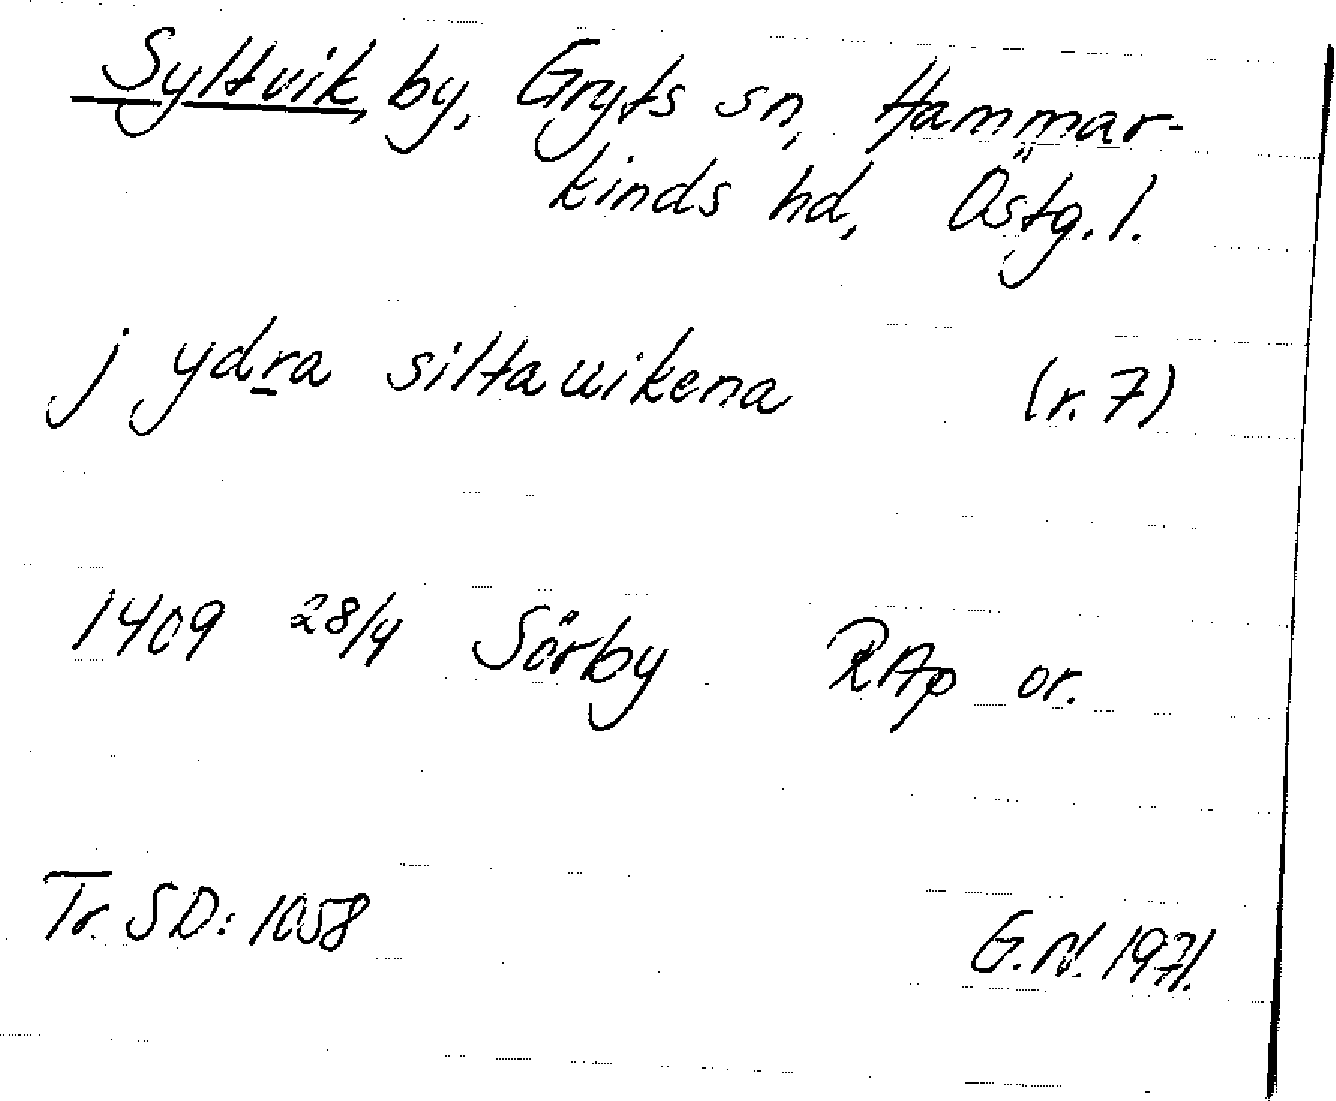 Syltvik, by, Gryts sn, Hammar-
kinds hd, Östg. l.
j ydra siltauikena (r. 7)
1409 28/4 Sörby RAp or.
Tr. SD: 1058 G.N. 1971.